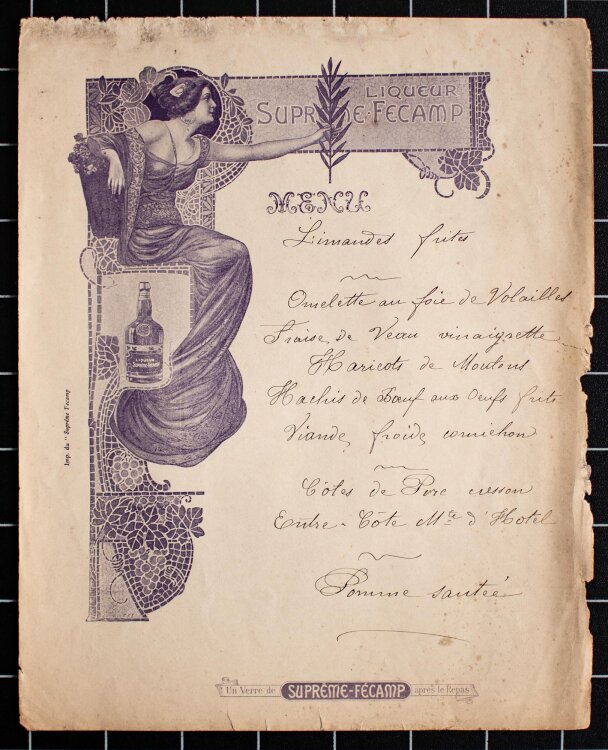 LIQUEUR
SUPRÊME-FÉCAMP
MENU
Limandes frites
Omelette au foie de Volailles
Fraise de Veau vinaigrette
Haricots de Moutons
Hachis de Bœuf aux Oeufs frits
Viande froide cornichon
Côtes de Porc cresson
Entre-Côte Mtre d'Hotel
Pomme sautée
LIQUEUR
SUPRÊME-FÉCAMP
Imp. du "Suprême Fécamp
Un Verre de SUPRÊME-FÉCAMP après le Repas